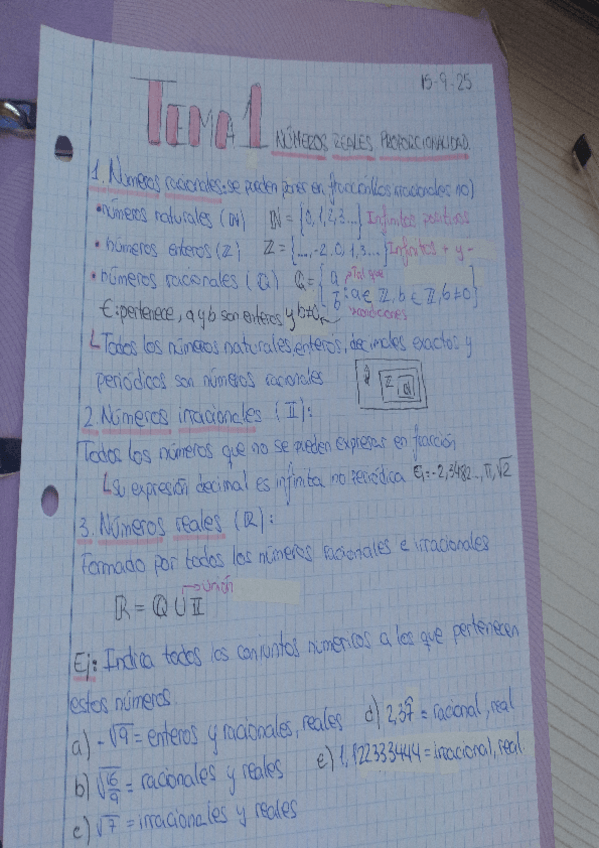 15-9-25
TEMA 1 NÚMEROS REALES. PROPORCIONALIDAD.
1. Números racionales: se pueden poner en fracción (los irracionales no)
• números naturales (ℕ) ℕ = {0,1,2,3...} Infinitos positivos
• números enteros (ℤ) ℤ = {...,-2,0,1,3...} Infinitos + y -
• números racionales (ℚ) ℚ = { a/b : a ∈ ℤ, b ∈ ℤ, b≠0 }
tal que
condiciones
€: pertenece, a y b son enteros y b≠0
Todos los números naturales, enteros, decimales exactos y
periódicos son números racionales
ℤ ℕ
2. Números irracionales (𝕀):
Todos los números que no se pueden expresar en fracción
Su expresión decimal es infinita no periódica Ej=-2,3482..., π, √2
3. Números reales (ℝ):
Formado por todos los números racionales e irracionales
unión
ℝ = ℚ ∪ 𝕀
Ej: Indica todos los conjuntos numéricos a los que pertenecen
estos números.
a) -√9 = enteros y racionales, reales
b) √16/9 = racionales y reales
c) √7 = irracionales y reales
d) 2,37̂ = racional, real
e) 1,122333444 = irracional, real